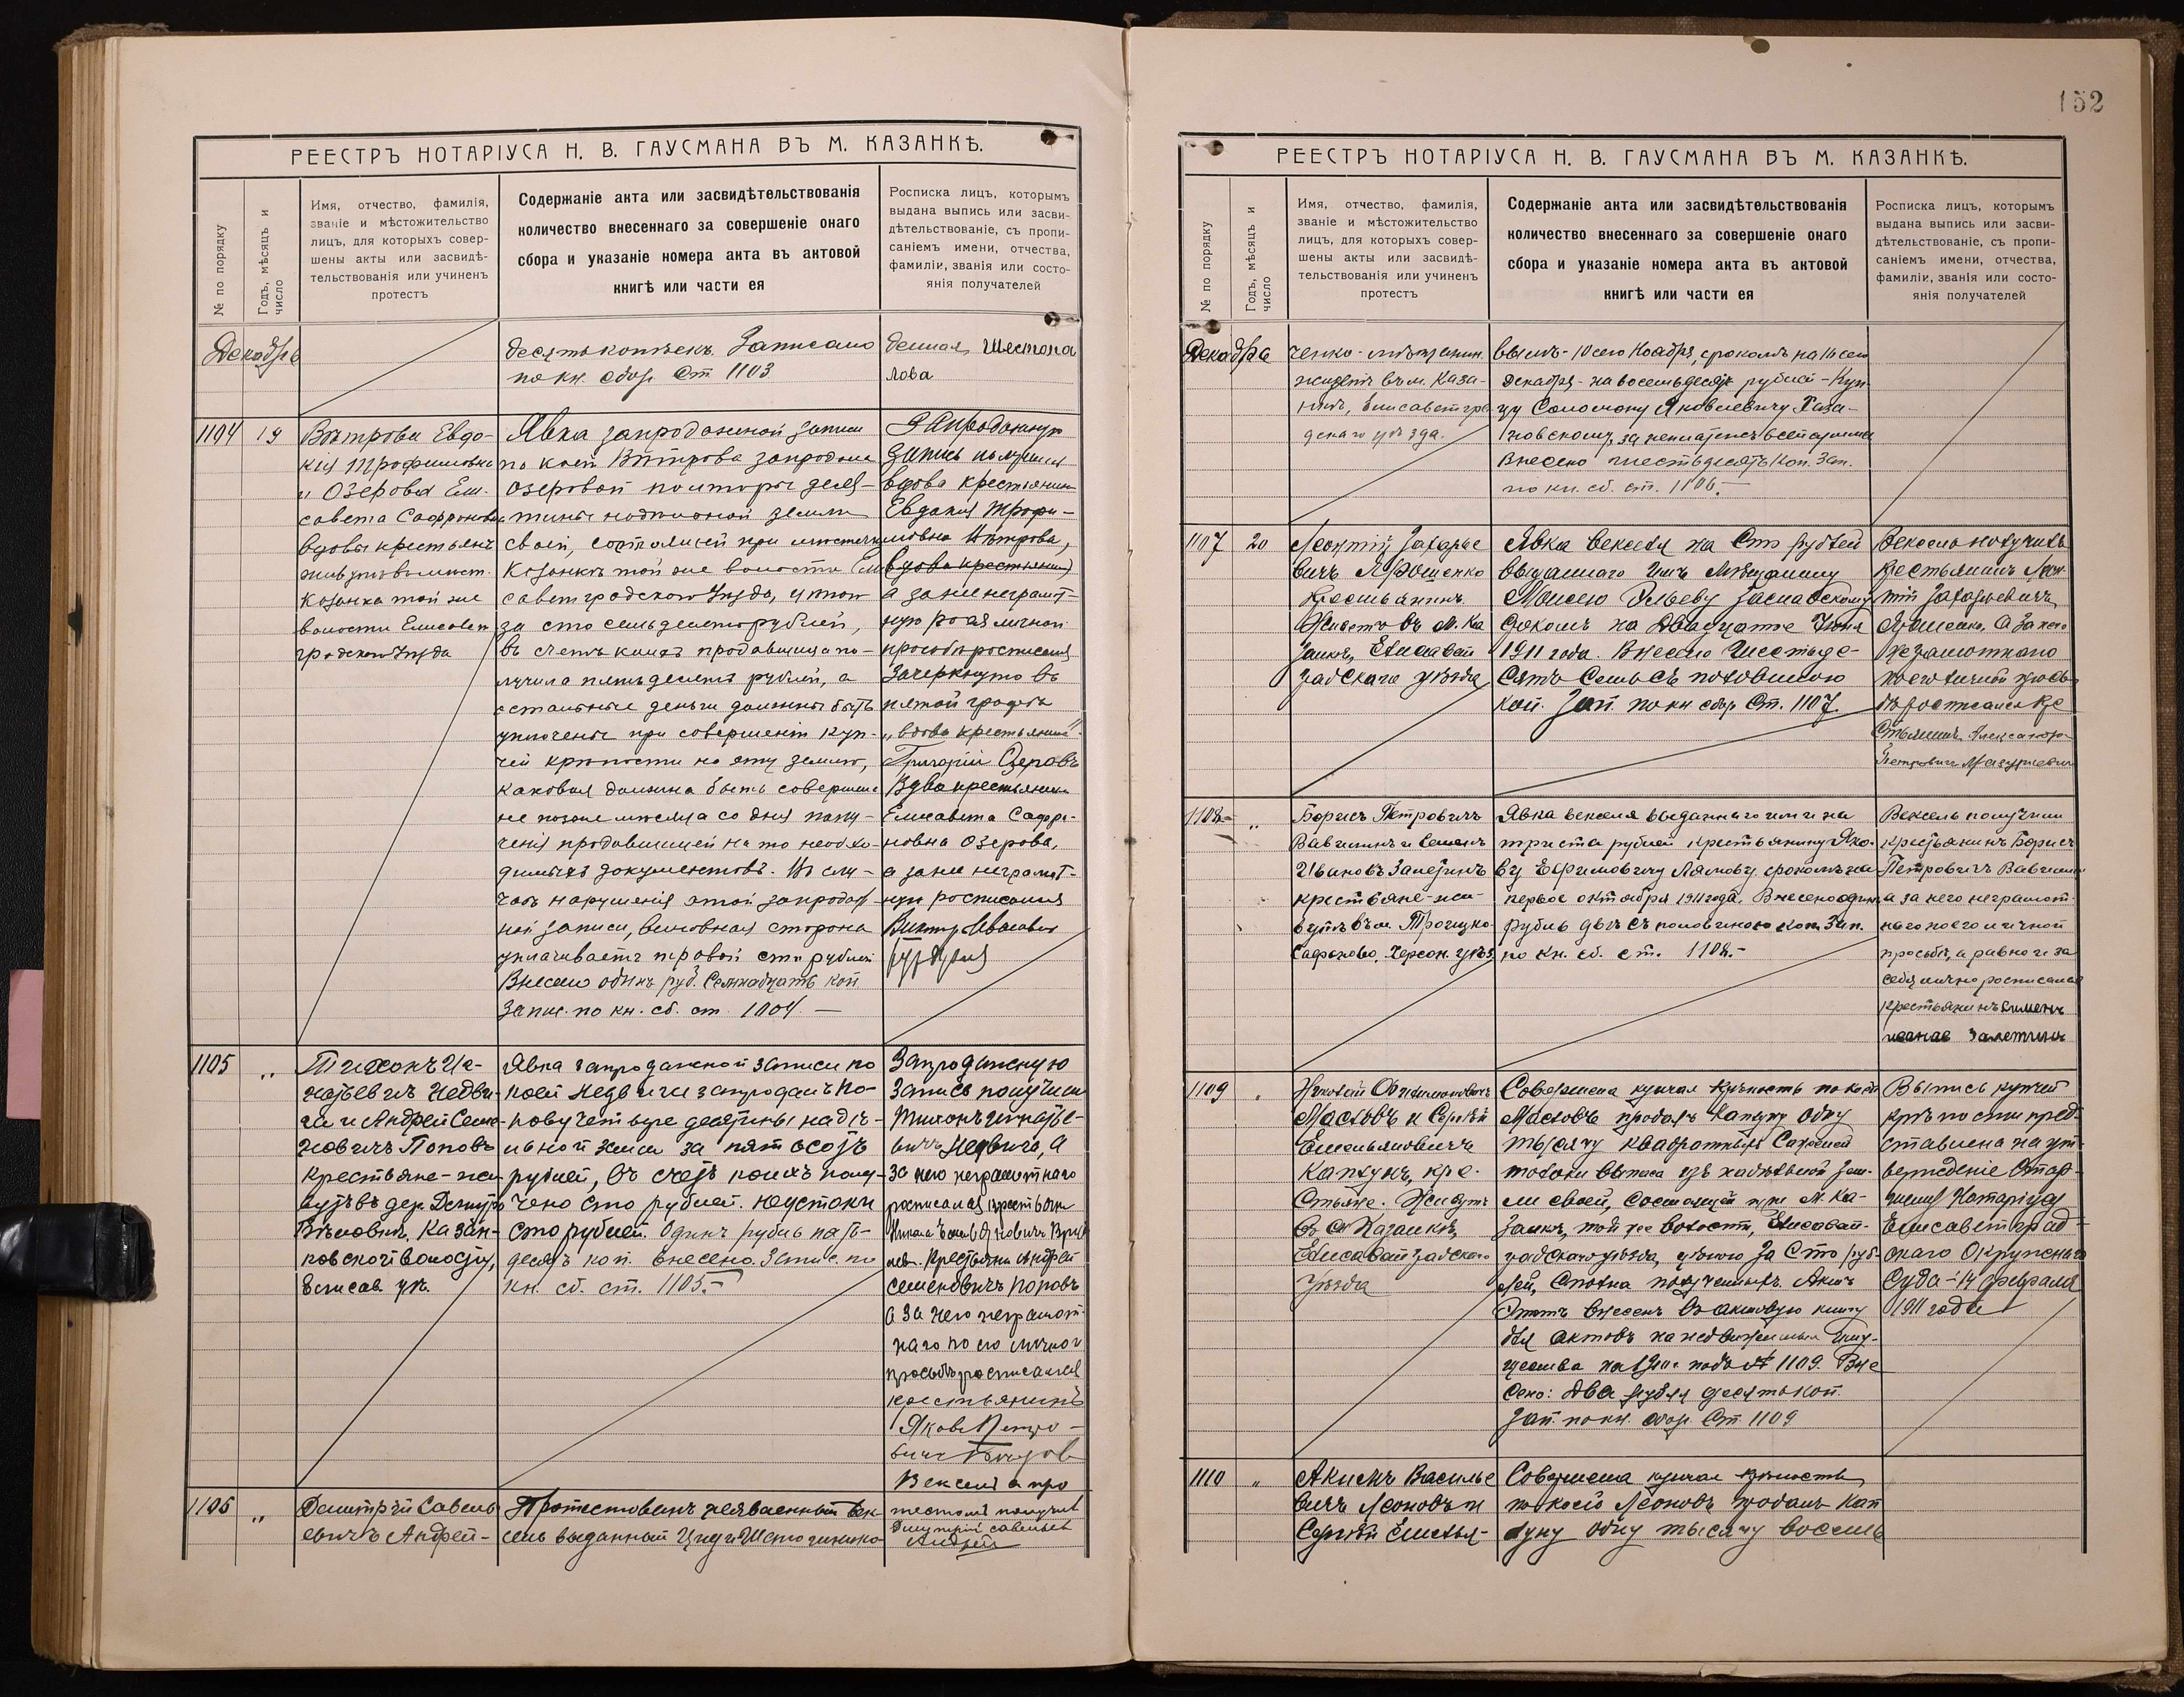 РЕЕСТРЪ НОТАРІУСА Н. В. ГАУСМАНА ВЪ М. КАЗАНКѢ.
№ по порядку
Годъ, мѣсяцъ и
число
Имя, отчество, фамилія,
званіе и мѣстожительство
лицъ, для которыхъ совер-
шены акты или засвидѣ-
тельствованія или учиненъ
протестъ
Содержаніе акта или засвидѣтельствованія
количество внесеннаго за совершеніе онаго
сбора и указаніе номера акта въ актовой
книгѣ или части ея
Росписка лицъ, которымъ
выдана выпись или засви-
дѣтельствованіе, съ пропи-
саніемъ имени, отчества,
фамиліи, званія или состо-
янія получателей
Декабрь
десять копѣекъ. Записано
по кн. сбор. Ст 1103
Шестопа
лова
1104
19
Вѣтрова Евдо-
кія Трофимовна
и Озерова Ели-
савета Сафроновна
вдовы крестьянъ
живутъ въ мѣст.
Казанка той же
волости Елисавет
градскаго Уѣзда
Явка запродажной записи
по коей Вѣтрова запродала
Озеровой полторы деся-
тины надѣльной земли
своей, состоящей при мѣстечкѣ
Казанкѣ той же волости Ели
саветградскаго Уѣзда, цѣною
за сто семьдесятъ рублей,
въ счетъ коихъ продавщица по-
лучила пятьдесятъ рублей, а
остальные деньги должны быть
уплочены при совершеніи куп-
чей крѣпости на эту землю,
каковая должна быть совершена
не позже мѣсяца со дня полу-
ченія продавщицей на то необхо-
димыхъ документовъ. Въ слу-
чаѣ нарушенія этой запродаж-
ной записи, виновная сторона
уплачиваетъ правой сто рублей
Внесено одинъ руб. Семнадцать коп
Запис. по кн. сб. ст. 1104. —
Запродажную
запись получила
вдова крестьянина
Евдокія Трофи-
мовна Вѣтрова,
вдова крестьянина
а за нее неграмот-
ную по ея личной
просьбѣ росписался
Зачеркнуто въ
пятой графѣ
„вдова крестьянина“.
Григорій Озеровъ
Вдова крестьянина
Елисавета Сафро-
новна Озерова,
а за нее неграмот-
ную росписался
Викторъ Ивановичъ
1105
„
Тихонъ Иг-
натьевичъ Недви-
га и Андрей Семе
новичъ Поповъ
крестьяне-жи-
вутъ въ дер. Дмитро
Бѣловкѣ, Казан-
ковской волости,
Елисав. уѣ.
Явка запродажной записи по
коей Недвига запродалъ По-
пову четыре десятины надѣ-
льной земли за пятьсотъ
рублей, въ счетъ коихъ полу-
чено сто рублей. Неустойки
сто рублей. Одинъ рубль пять-
десятъ коп. внесено. Запис. по
кн. сб. ст. 1105.—
Запродажную
Запись получили
Тихонъ Игнатье-
вичъ Недвига, а
за него неграмотнаго
росписался крестьянинъ
Крестьянинъ Андрей
Семеновичъ Поповъ
а за него неграмот-
наго по его личной
просьбѣ росписался
крестьянинъ
Яковъ Петро-
вичъ
1106
„
Дмитрій Савель
евичъ Андрей-
Протестованъ неявленный век-
сель выданный
Вексель а про
тестомъ получилъ
Дмитрій Савельев
Андрей
152
РЕЕСТРЪ НОТАРІУСА Н. В. ГАУСМАНА ВЪ М. КАЗАНКѢ.
№ по порядку
Годъ, мѣсяцъ и
число
Имя, отчество, фамилія,
званіе и мѣстожительство
лицъ, для которыхъ совер-
шены акты или засвидѣ-
тельствованія или учиненъ
протестъ
Содержаніе акта или засвидѣтельствованія
количество внесеннаго за совершеніе онаго
сбора и указаніе номера акта въ актовой
книгѣ или части ея
Росписка лицъ, которымъ
выдана выпись или засви-
дѣтельствованіе, съ пропи-
саніемъ имени, отчества,
фамиліи, званія или состо-
янія получателей
Декабря
ченко-мѣщанин.
живетъ въ м. Каза-
нкѣ, Елисаветгра
дскаго уѣзда.
10 сего Ноября, срокомъ на 16 сего
Декабря - на восемьдесят рублей - Куп-
цу Соломону Яковлевичу
за неплатежъ всей суммы
Внесено шестьдесятъ коп. Зап.
по кн. сб. ст. 1106.—
1107
20
Леонтій Захарье
вичъ Ярошенко
Крестьянинъ.
Живетъ въ М. Ка
занкѣ, Елисавет
градскаго уѣзда
Явка векселя на Сто рублей
выданнаго имъ Мѣщанину
Моисею Заславскому
срокомъ на Двадцатое Іюня
1911 года. Внесено Шестьде-
сятъ Семь съ половиною
коп. Зап. по кн сбор Ст. 1107.
Вексель получилъ
Крестьянинъ Леон-
тій Захарьевичъ
Ярошенко, а за него
неграмотнаго
по его личной прось-
бѣ росписался Кре
стьянинъ Александр
Петровичъ
1108
„
Борисъ Петровичъ
Вавчинъ и Семенъ
Ивановъ Залетинъ
крестьяне-жи-
вутъ въ м. Троицко-
Сафоново, Херсон. уѣз.
Явка векселя выданнаго ими на
триста рублей крестьянину Яко-
ву Ефимовичу Лямову, срокомъ на
первое октября 1911 года. Внесено одинъ
рубль двѣ съ половиною коп. Зап.
по кн. сб. ст. 1108.—
Вексель получили
крестьянинъ Борисъ
Петровичъ Вавчинъ
а за него неграмот-
наго по его личной
просьбѣ, а равно и за
себя лично росписался
крестьянинъ Семенъ
Иванов Залетинъ
1109
„
Масловъ и Сергѣй
Емельяновичъ
Каплунъ, кре-
стьяне. Живутъ
въ М Казанкѣ,
Елисаветградскаго
Уѣзда
Совершена купчая крѣпость по коей
Масловъ продалъ Каплуну одну
тысячу квадратныхъ Саженей
толоки выпаса изъ надѣльной зем-
ли своей, состоящей при М. Ка-
занкѣ, той же волости, Елисавет-
градскаго уѣзда, цѣною за Сто руб-
лей, сполна полученныхъ. Актъ
Этотъ внесенъ въ актовую книгу
для актовъ на недвижимыя Иму-
щества на 1910 г подъ № 1109. Вне
сено: два рубля десять коп.
Зап. по кн. сбор Ст 1109
Выпись купчей
крѣпости пред-
ставлена на ут-
вержденіе Стар-
шему Нотаріусу
Елисаветград-
скаго Окружнаго
Суда - 14 февраля
1911 года
1110
„
Акимъ Василье
вичъ Леоновъ и
Сергѣй Емелья-
Совершена купчая крѣпость
по коей Леоновъ продалъ Кап
луну одну тысячу восемь